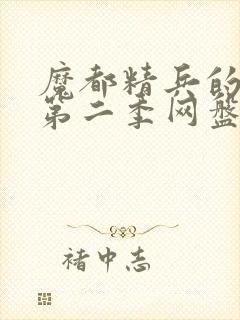 魔都精兵的
第二季网盘
褚中志